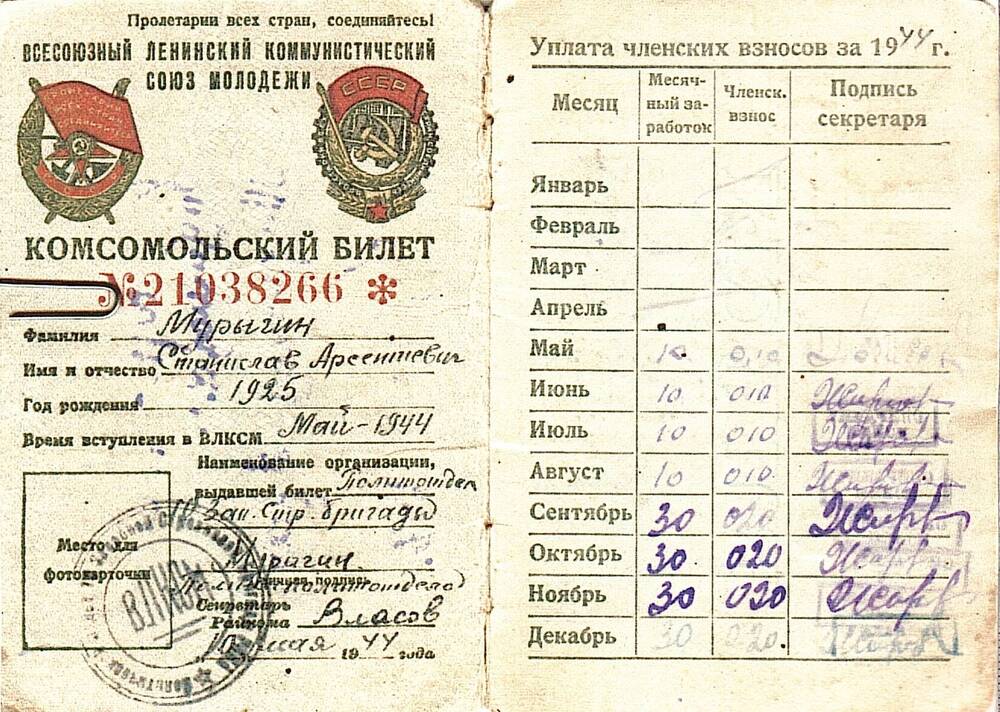 Пролетарии всех стран, соединяйтесь!
ВСЕСОЮЗНЫЙ ЛЕНИНСКИЙ КОММУНИСТИЧЕСКИЙ
СОЮЗ МОЛОДЕЖИ
СССР
КОМСОМОЛЬСКИЙ БИЛЕТ
№21038266 *
Фамилия Мурыгин
Имя и отчество Станислав Арсентиевич
Год рождения 1925
Время вступления в ВЛКСМ Май-1944
Наименование организации,
выдавшей билет Политотдел
Зап. Стр. бригады
Место для
фотокарточки
Мурыгин
Личная подпись
Секретарь
Райкома Власов
мая 1944 года
ВЛКСМ
Уплата членских взносов за 1944 г.
Месяц Месячный заработок Членск. взнос Подпись секретаря
Январь
Февраль
Март
Апрель
Май 10 0,10
Июнь 10 010
Июль 10 010
Август 10 010
Сентябрь 30 020
Октябрь 30 020
Ноябрь 30 020
Декабрь 30 020